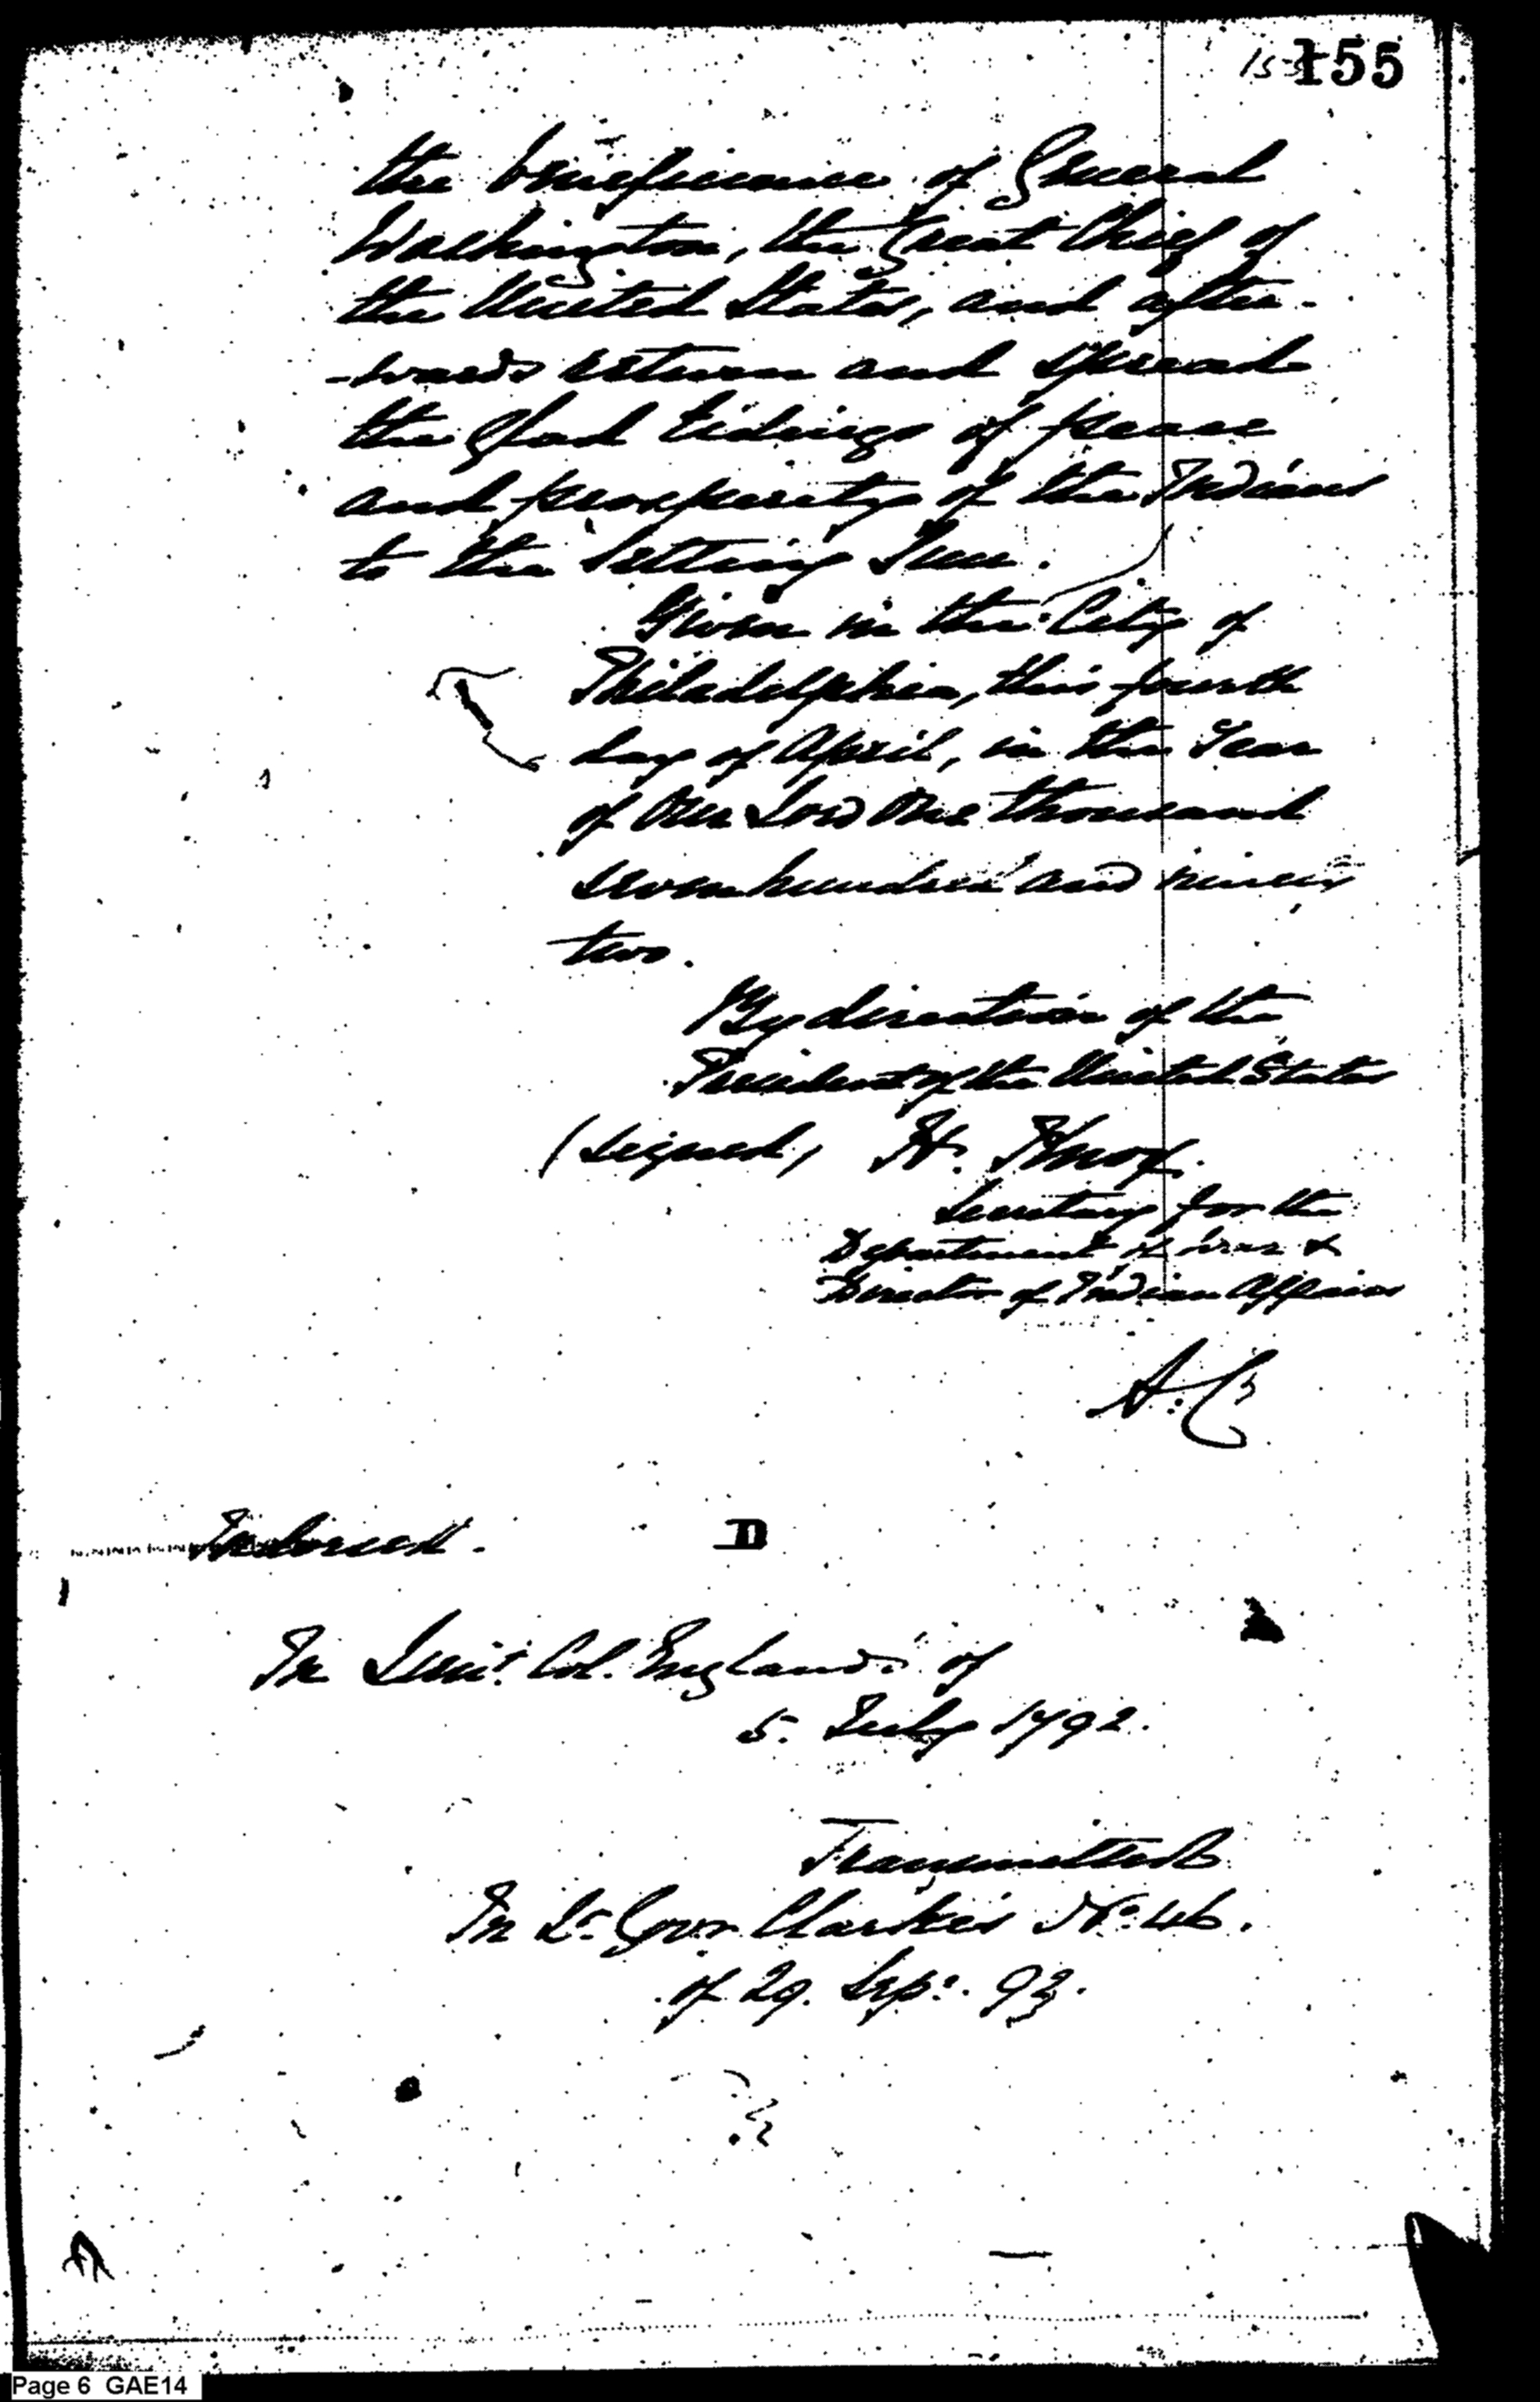 155 155
the beneficence of General
Washington, the Great Chief of
the United States, and after-
-wards return and spread
the glad tidings of peace
and prosperity of the Indians
to the Setting Sun.
Given in the City of
Philadelphia, this fourth
day of April, in the Year
of Our Lord One thousand
seven hundred and ninety
two.
By direction of the
President of the United States
(Signed) H. Knox.
Secretary for the
Department of War &
Director of Indian Affairs
A. C.
Indorsed. D
In Lieut. Col. England's of
5. July 1792.
Transmitted
In Lt. Govr. Clarke's No. 46.
of 29. Sep: 92.
Page 6 GAE14